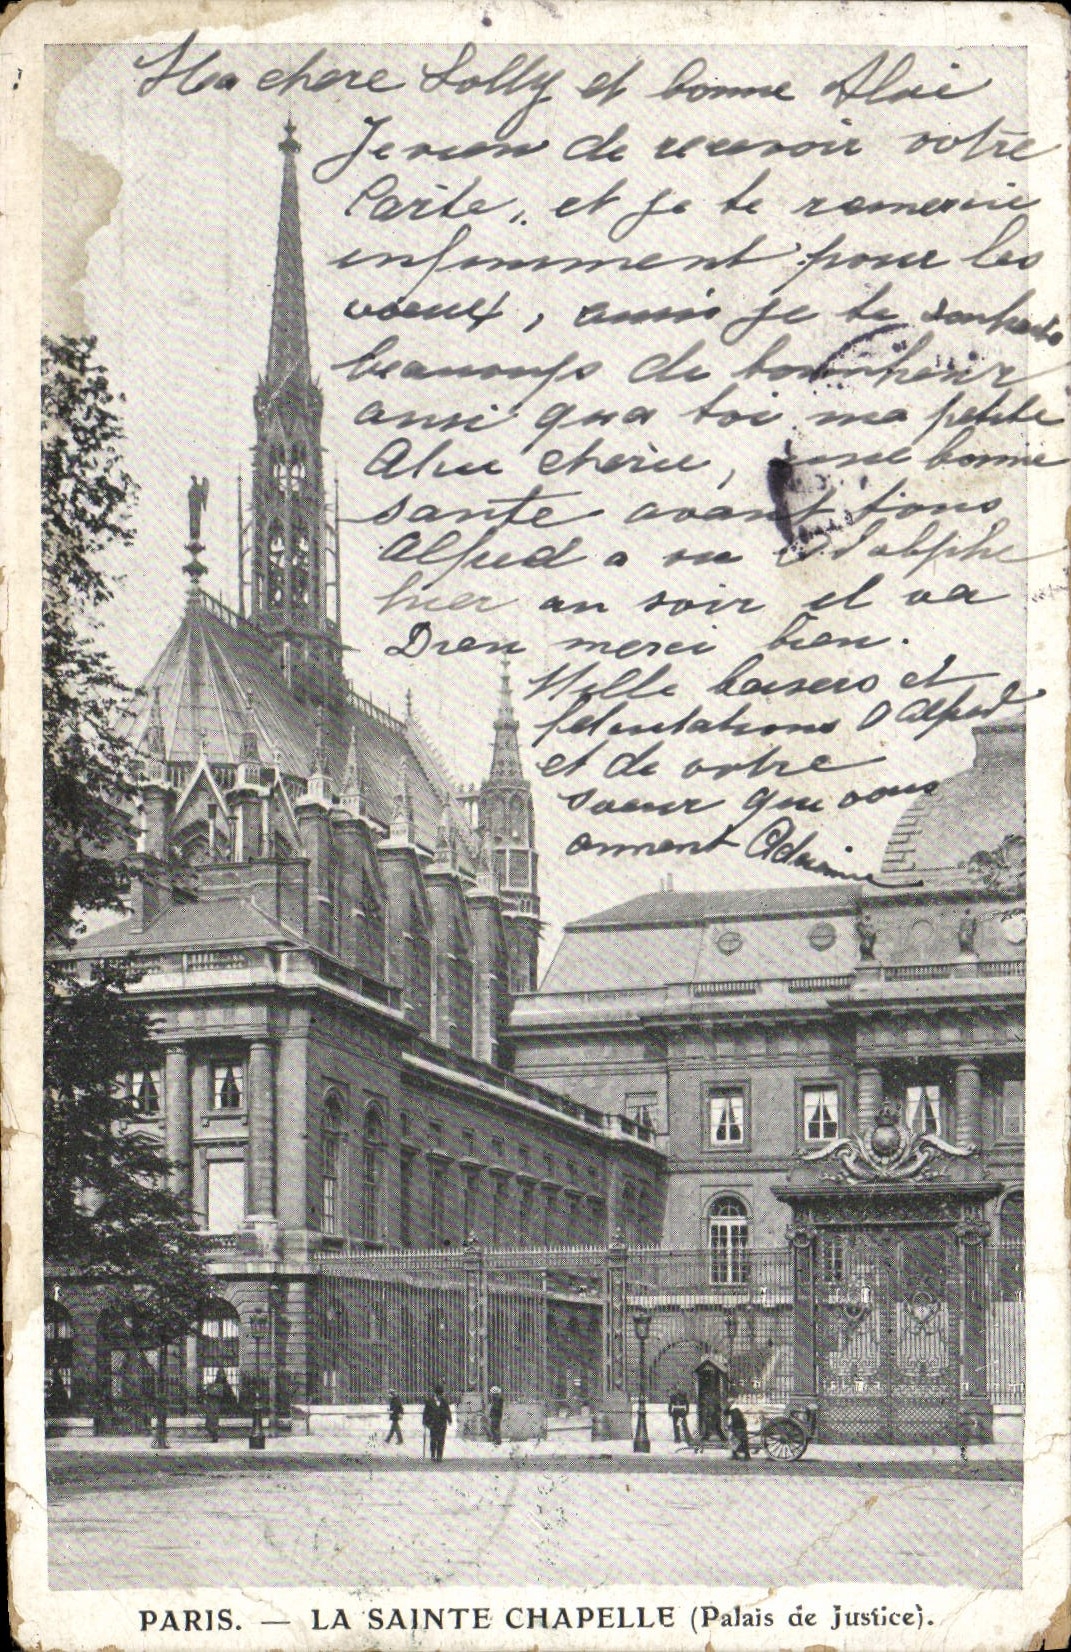 Ma chere Lolly et bonne
Je vien de recevoir votre
Carte, et je te remercie
infiniment pour les
voeux, aussi je te souhaite
beaucoups de bonnheur
aussi qua toi ma petite
cherie, une bonne
sante avant tous
Alfred a vu Adolphe
hier au soir il va
Dieu merci bien.
Mille baisers et
felicitations d Alfred
et de votre
soeur qui vous
aiment Adrienne
PARIS. — LA SAINTE CHAPELLE (Palais de Justice).